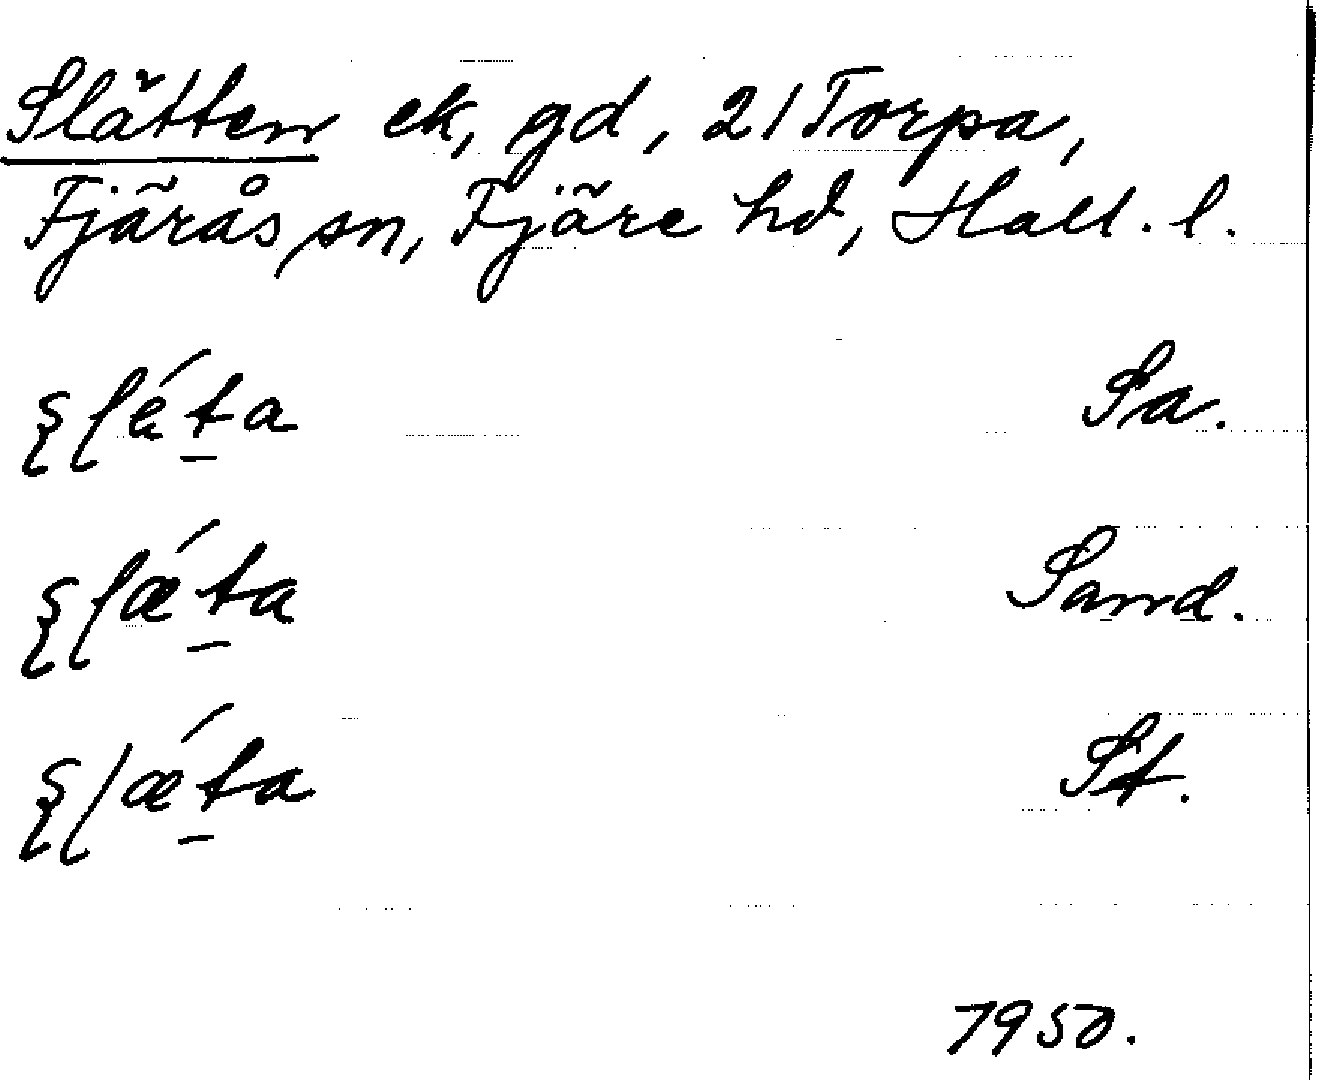 Slätten ek, gd, 21 Torpa,
Fjärås sn, Fjäre hd, Hall. l.
Sa.
Sand.
St.
1950.